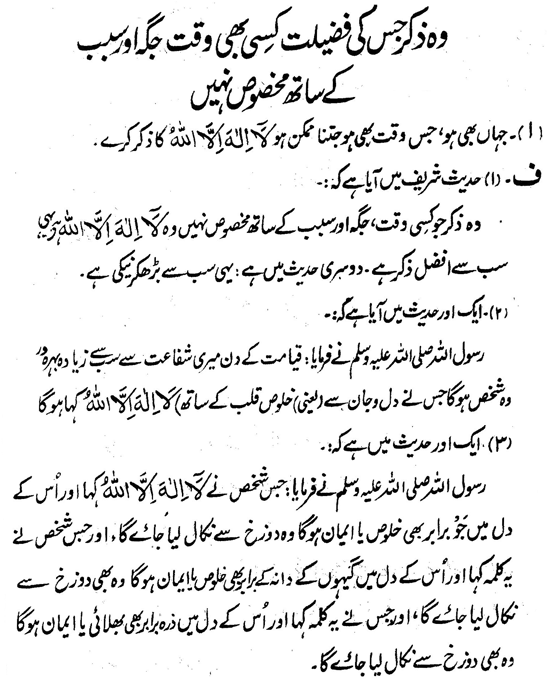 وہ ذکر جس کی فضیلت کسی بھی وقت جگہ اور سبب
کے ساتھ مخصوص نہیں
(۱)۔ جہاں بھی ہو، جس وقت بھی ہو جتنا ممکن ہو لَا اِلٰہَ اِلَّا اللہُ کا ذکر کرے۔
ف۔ (۱) حدیث شریف میں آیا ہے کہ:۔
وہ ذکر جو کسی وقت، جگہ اور سبب کے ساتھ مخصوص نہیں وہ لَا اِلٰہَ اِلَّا اللہُ ہے یہی
سب سے افضل ذکر ہے۔ دوسری حدیث میں ہے: یہی سب سے بڑھکر نیکی ہے۔
(۲)۔ ایک اور حدیث میں آیا ہے کہ:۔
رسول اللہ صلی اللہ علیہ وسلم نے فرمایا: قیامت کے دن میری شفاعت سے سب سے زیادہ بہرہ ور
وہ شخص ہوگا جس نے دل و جان سے (یعنی خلوص قلب کے ساتھ) لَا اِلٰہَ اِلَّا اللہُ کہا ہوگا
(۳)۔ ایک اور حدیث میں ہے کہ:۔
رسول اللہ صلی اللہ علیہ وسلم نے فرمایا: جس شخص نے لَا اِلٰہَ اِلَّا اللہُ کہا اور اُس کے
دل میں جَو برابر بھی خلوص یا ایمان ہوگا وہ دوزخ سے نکال لیا جائے گا، اور جس شخص نے
یہ کلمہ کہا اور اُس کے دل میں گیہوں کے دانہ کے برابر بھی خلوص یا ایمان ہوگا وہ بھی دوزخ سے
نکال لیا جائے گا، اور جس نے یہ کلمہ کہا اور اُس کے دل میں ذرہ برابر بھی بھلائی یا ایمان ہوگا
وہ بھی دوزخ سے نکال لیا جائے گا۔